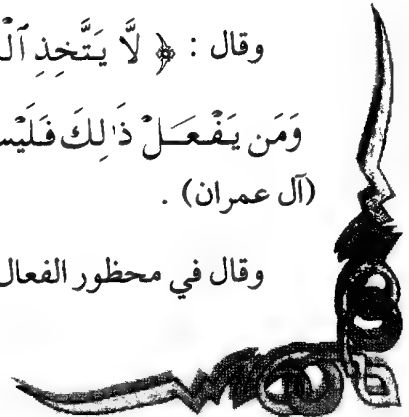 وقال : ﴿ لَّا يَتَّخِذِ
وَمَن يَفْعَلْ ذَٰلِكَ
(آل عمران) .
وقال في محظور الفعال